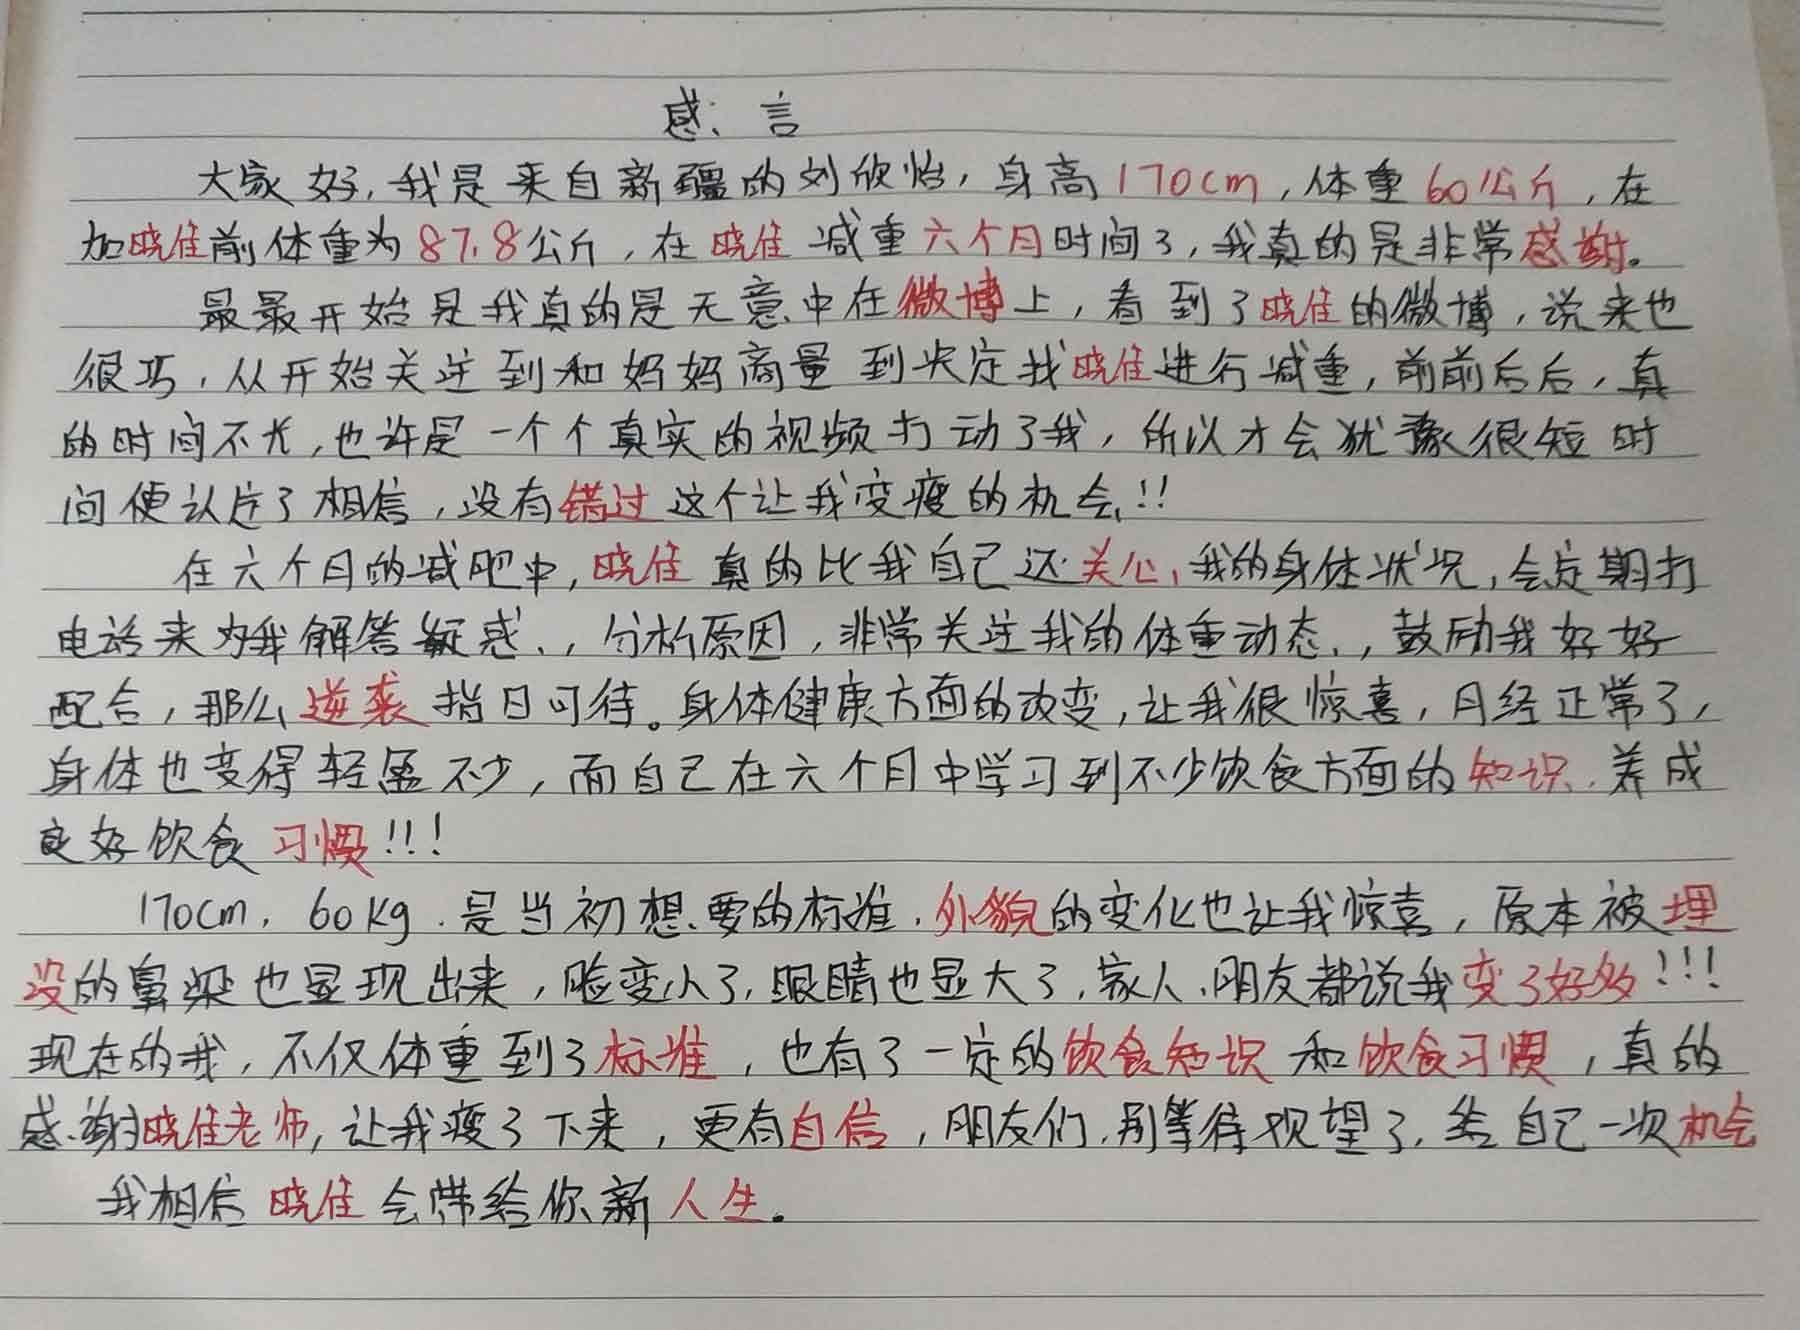 感言
大家好，我是来自新疆的刘欣怡，身高170cm，体重60公斤，在
加晓佳前体重为87.8公斤，在晓佳减重六个月时间了，我真的是非常感谢。
最最开始是我真的是无意中在微博上，看到了晓佳的微博，说来也
很巧，从开始关注到和妈妈商量到决定找晓佳进行减重，前前后后，真
的时间不长，也许是一个个真实的视频打动了我，所以才会犹豫很短时
间便认定了相信，没有错过这个让我变瘦的机会!!
在六个月的减肥中，晓佳真的比我自己还关心，我的身体状况，会定期打
电话来为我解答疑惑，分析原因，非常关注我的体重动态，鼓励我好好
配合，那么逆袭指日可待。身体健康方面的改变，让我很惊喜，月经正常了，
身体也变得轻盈不少，而自己在六个月中学习到不少饮食方面的知识，养成
良好饮食习惯!!!
170cm，60kg，是当初想要的标准，外貌的变化也让我惊喜，原本被埋
没的鼻梁也显现出来，脸变小了，眼睛也显大了，家人、朋友都说我变了好多!!!
现在的我，不仅体重到了标准，也有了一定的饮食知识和饮食习惯，真的
感谢晓佳老师，让我瘦了下来，更有自信，朋友们，别等待观望了，给自己一次机会
我相信晓佳会带给你新人生。